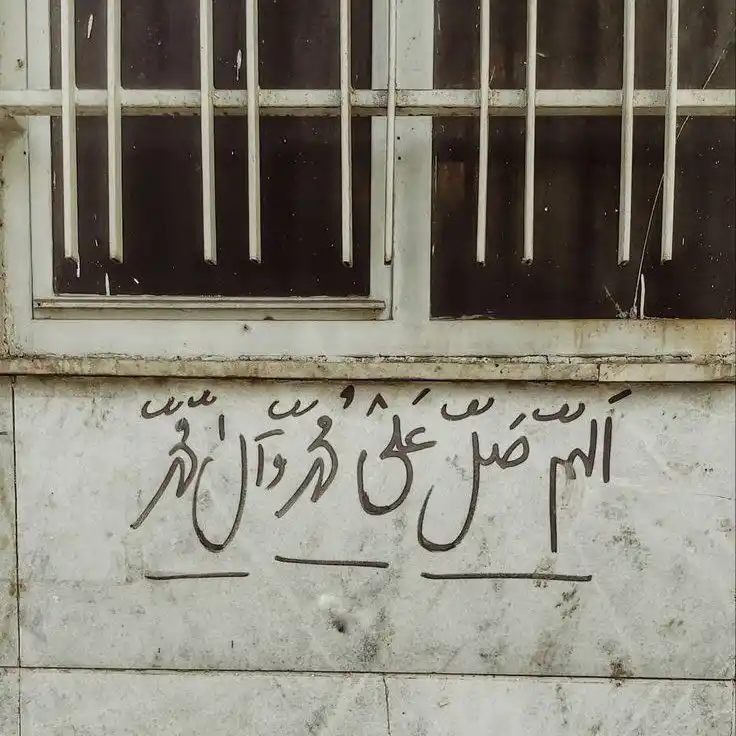 اَللهمّ صَلّ عَلیٰ مُحمّد وآل محمّد